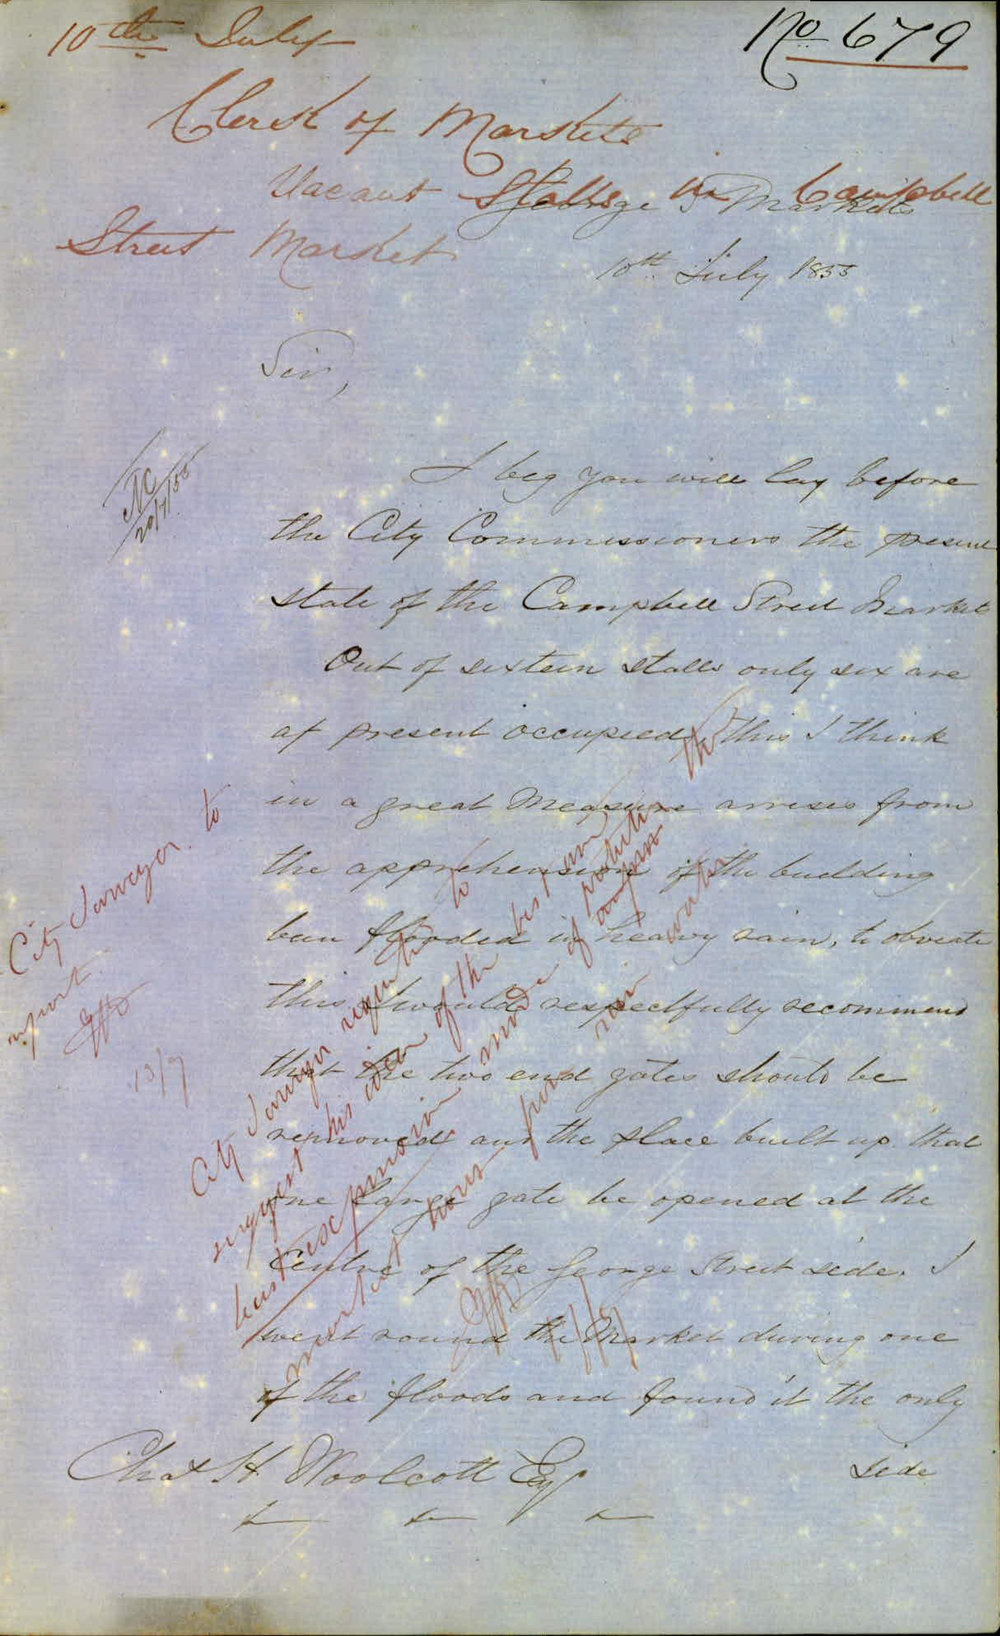 10th July
No 679
Clerk of Markets
Vacant Stalls in Campbell
Street Market
George St Markets
10th July 1855
Sir,
I beg you will lay before
the City Commissioners the present
state of the Campbell Street Market
Out of sixteen stalls only six are
at present occupied, this I think
in a great Measure arrises from
the apprehension of the building
been flooded in heavy rain, to obviate
this I would respectfully recommend
that the two end gates should be
removed and the place built up that
one large gate be opened at the
Centre of the George Street side. I
went round the Market during one
of the floods and found it the only
side
Chas H. Woolcott Esq
20/7/55
City Surveyor to
report
13/7
City Surveyor requested to
suggest his idea of the best and
least expensive mode of protecting the
market
from
rain water